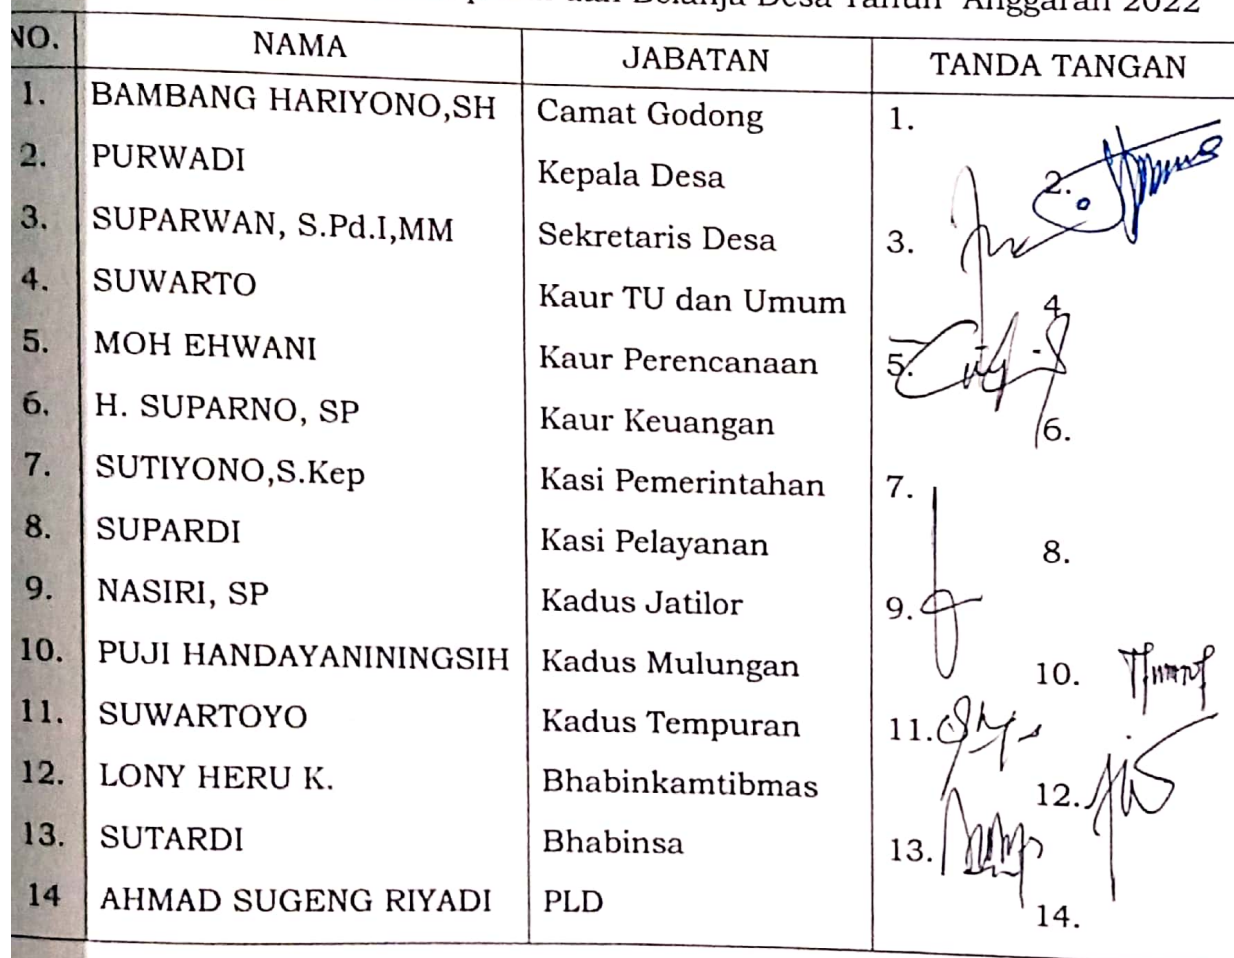 dan Belanja Desa Tahun Anggaran 2022
NO. NAMA JABATAN TANDA TANGAN
1. BAMBANG HARIYONO,SH Camat Godong 1.
2. PURWADI Kepala Desa 2.
3. SUPARWAN, S.Pd.I,MM Sekretaris Desa 3.
4. SUWARTO Kaur TU dan Umum 4.
5. MOH EHWANI Kaur Perencanaan 5.
6. H. SUPARNO, SP Kaur Keuangan 6.
7. SUTIYONO,S.Kep Kasi Pemerintahan 7.
8. SUPARDI Kasi Pelayanan 8.
9. NASIRI, SP Kadus Jatilor 9.
10. PUJI HANDAYANININGSIH Kadus Mulungan 10.
11. SUWARTOYO Kadus Tempuran 11.
12. LONY HERU K. Bhabinkamtibmas 12.
13. SUTARDI Bhabinsa 13.
14 AHMAD SUGENG RIYADI PLD 14.